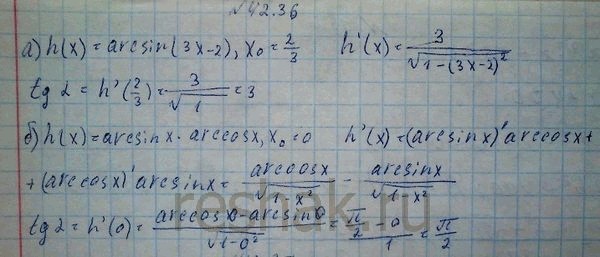 №42.36
а) h(x) = arcsin(3x-2), x₀ = 2/3   h'(x) = 3/√(1-(3x-2)²)
tg 2 = h'(2/3) = 3/√1 = 3
б) h(x) = arcsinx · arccosx, x₀ = 0   h'(x) = (arcsinx)' arccosx +
+ (arccosx)' arcsinx = arccosx/√(1-x²) - arcsinx/√(1-x²)
tg 2 = h'(0) = (arccos0 - arcsin0)/√(1-0²) = (π/2 - 0)/1 = π/2
reshak.ru